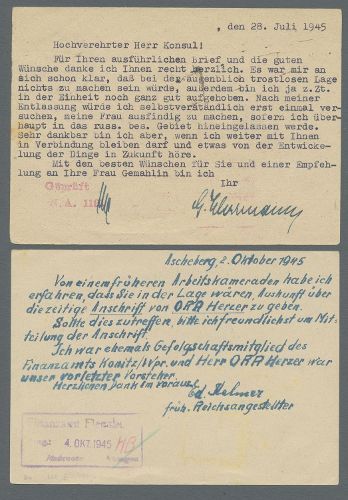 , den 28. Juli 1945
Hochverehrter Herr Konsul!
Für Ihren ausführlichen Brief und die guten
Wünsche danke ich Ihnen recht herzlich. Es war mir an
sich schon klar, daß bei der augenblich trostlosen Lage
nichts zu machen sein würde, außerdem bin ich ja z.Zt.
in der Einheit noch ganz gut aufgehoben. Nach meiner
Entlassung würde ich selbstverständlich erst einmal ver-
suchen, meine Frau ausfindig zu machen, sofern ich über-
haupt in das russ. bes. Gebiet hineingelassen werde.
Sehr dankbar bin ich aber, wenn ich weiter mit Ihnen
in Verbindung bleiben darf und etwas von der Entwicke-
lung der Dinge in Zukunft höre.
Mit den besten Wünschen für Sie und einer Empfeh-
lung an Ihre Frau Gemahlin bin ich
Ihr
Geprüft
Ascheberg, 2. Oktober 1945
Von einem früheren Arbeitskameraden habe ich
erfahren, dass Sie in der Lage wären, Auskunft über
die zeitige Anschrift von ORR Herzer zu geben.
Sollte dies zutreffen, bitte ich freundlichst um Mit-
teilung der Anschrift.
Ich war ehemals Gefolgschaftsmitglied des
Finanzamts Konitz/Wpr. und Herr ORR Herzer war
unser vorletzter Vorsteher.
Herzlichen Dank im voraus!
früh. Reichsangestellter
4. OKT. 1945